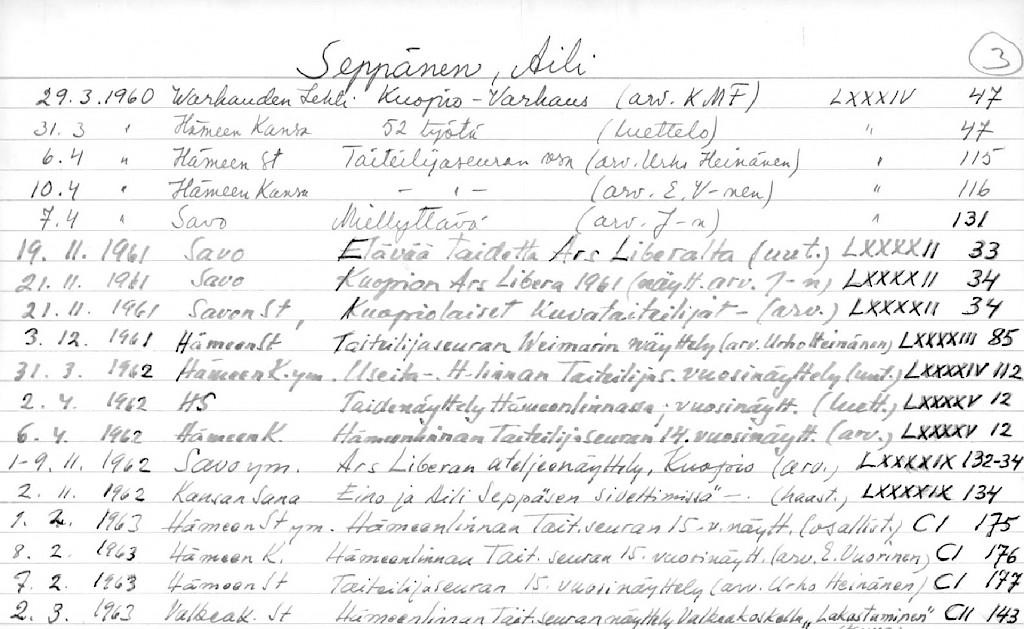 3
Seppänen, Aili
29.3.1960 Warkauden Lehti Kuopio-Varkaus (arv. K.M.F) LXXXIV 47
31.3 " Hämeen Kansa 52 työtä (luettelo) " 47
6.4 " Hämeen St Taiteilijaseuran (arv. Urho Heinänen) " 115
10.4 " Hämeen Kansa - " - (arv. E. V-nen) " 116
7.4 " Savo Miellyttävä (arv. J-n) " 131
19. 11. 1961 Savo Elävää Taidetta Ars Liberalta (uut.) LXXXXII 33
21. 11. 1961 Savo Kuopion Ars Libera 1961 (näytt. arv. J-n) LXXXXII 34
21. 11. 1961 Savon St, Kuopiolaiset Kuvataiteilijat - (arv.) LXXXXII 34
3. 12. 1961 Hämeen St Taiteilijaseuran Weimarin näyttely (arv. Urho Heinänen) LXXXXIII 85
31. 3. 1962 Hämeen K. ym. Useita - H-linnan Taiteilijas. vuosinäyttely (uut.) LXXXXIV 112
2. 4. 1962 HS Taidenäyttely Hämeenlinnassa; vuosinäytt. (luett.) LXXXXV 12
6. 4. 1962 Hämeen K. Hämeenlinnan Taiteilijaseuran 14. vuosinäytt. (arv.) LXXXXV 12
1-9. 11. 1962 Savo ym. Ars Liberan ateljeenäyttely, Kuopio (arv.) LXXXXIX 132-34
2. 11. 1962 Kansan Sana Eino ja Aili Seppäsen siveltimissä" -. (haast.) LXXXXIX 134
1. 2. 1963 Hämeen St ym. Hämeenlinnan Tait.seuran 15-v. näytt. (osallist.) CI 175
8. 2. 1963 Hämeen K. Hämeenlinnan Tait. seuran 15. vuosinäytt. (arv. E. Vuorinen) CI 176
7. 2. 1963 Hämeen St Taiteilijaseuran 15. vuosinäyttely (arv. Urho Heinänen) CI 177
2. 3. 1963 Valkeak. St Hämeenlinnan Tait. seuran näyttely Valkeakoskella „Lakastuminen" CII 143